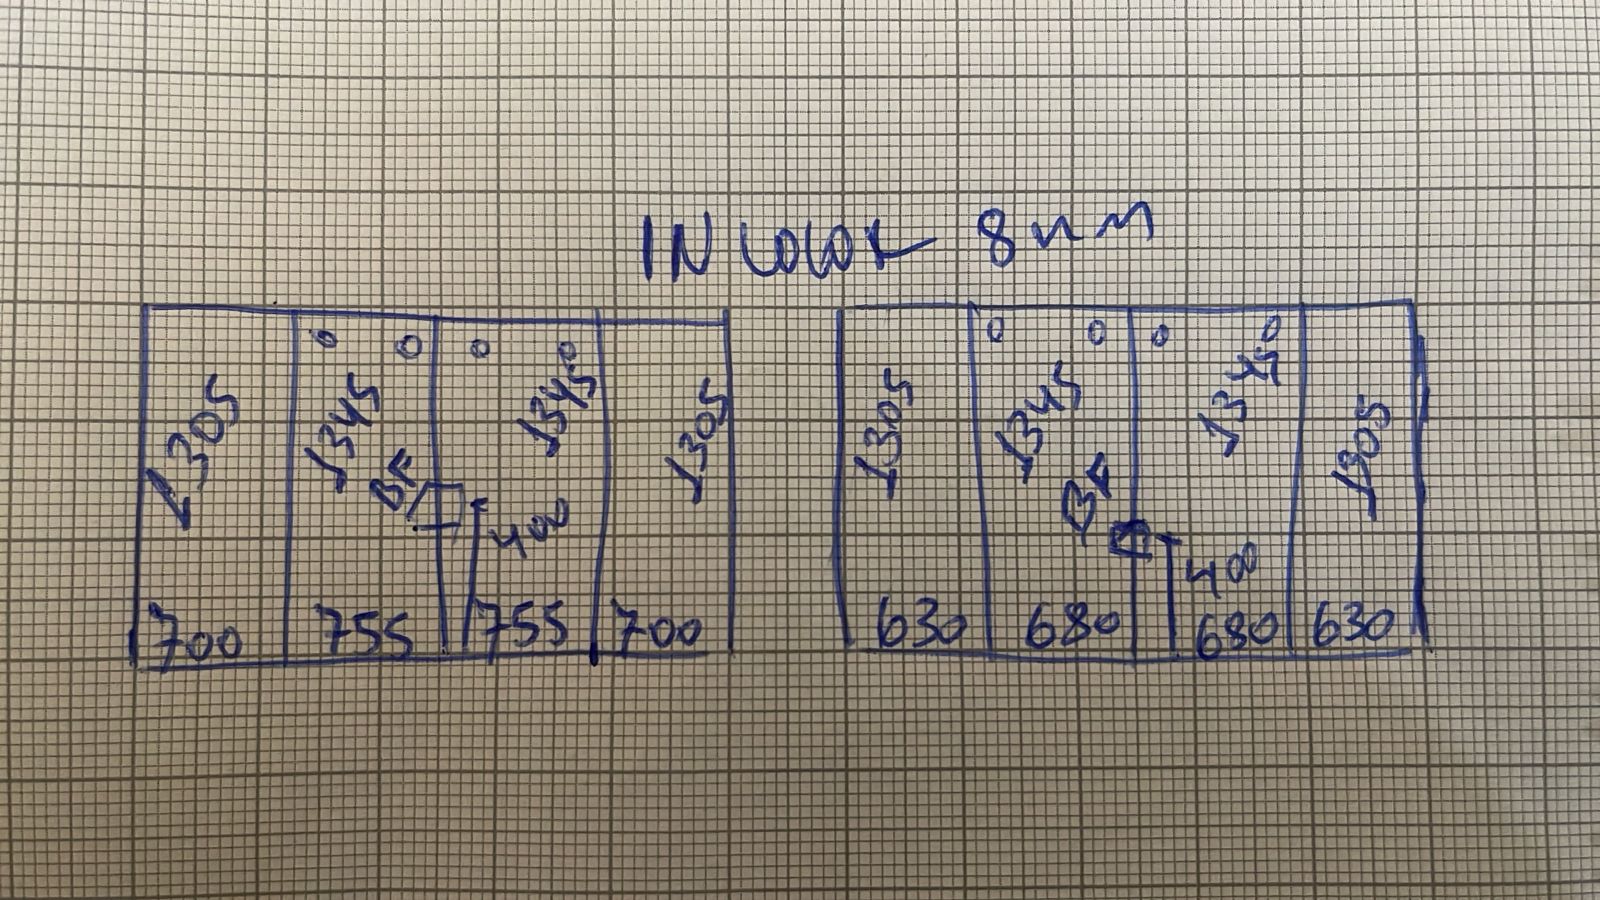 IN COLOR 8mm
1305 1345 1345 1305
BF 400
700 755 755 700
1305 1345 1345 1305
BF 400
630 680 680 630